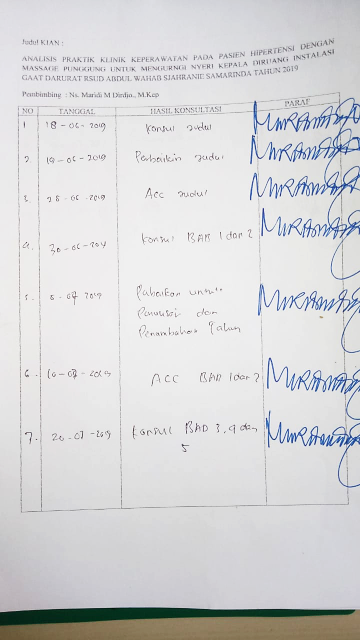 Judul KIAN :
ANALISIS PRAKTIK KLINIK KEPERAWATAN PADA PASIEN HIPERTENSI DENGAN
MASSAGE PUNGGUNG UNTUK MENGURNGI NYERI KEPALA DIRUANG INSTALASI
GAAT DARURAT RSUD ABDUL WAHAB SJAHRANIE SAMARINDA TAHUN 2019
Pembimbing : Ns. Maridi M Dirdjo., M.Kep
NO TANGGAL HASIL KONSULTASI PARAF
1 18-06-2019 Konsul Judul
2. 19-06-2019 Perbaikin Judul
3. 28-06-2019 Acc Judul
4. 30-06- Konsul BAB 1 dan 2
5. 2019
dan
Penambahan
6. 10-07-2019 ACC BAB 1 dan 2
7. 20-07-2019 Konsul BAB 3, 4 dan
5